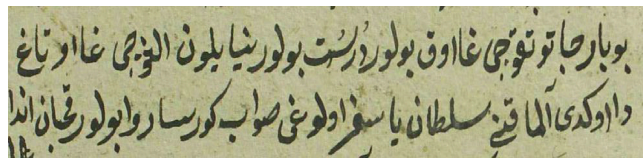 بو بارجا توتقوجی غا اوق بولور درست بولور نیابیلون الغوجی غا اوتاغ
دا اوکدی آلماقنی سلطان یا سفر اولوغی صواب کورسا روا بولور قجان اندا